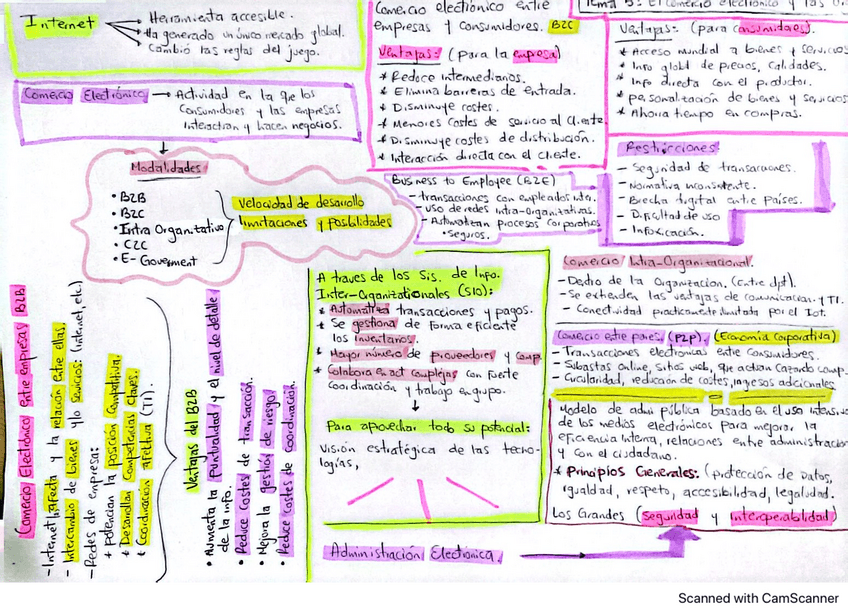 Internet
Herramienta accesible.
Ha generado un único mercado global.
Cambió las reglas del juego.
Comercio Electrónico → Actividad en la que los
consumidores y las empresas
interactuan y hacen negocios.
Modalidades
• B2B
• B2C
• Intra Organizativo
• C2C
• E-Goverment
Velocidad de desarrollo
limitaciones y posibilidades
Comercio electrónico entre
empresas y consumidores. B2C
Ventajas: (para la empresa)
* Reduce intermediarios.
* Elimina barreras de entrada.
* Disminuye costes.
* Menores costes de servicio al cliente.
* Disminuye costes de distribución.
* Interacción directa con el cliente.
Tema 5: El comercio electrónico y las
Ventajas: (para consumidores).
* Acceso mundial a bienes y servicios
* Info global de precios, calidades.
* Info directa con el productor.
* personalización de bienes y servicios
* Ahorra tiempo en compras.
Business to Employee (B2E)
- transacciones con empleados
- Uso de redes Intra-Organizativas.
- Automatizan procesos corporativos
• Seguros.
Restricciones
- Seguridad de transacciones.
- Normativa inconsistente.
- Brecha digital entre países.
- Dificultad de uso
- Infoxicación.
Comercio Electrónico entre empresas B2B
- Internet afecta y la relación entre ellas.
- Intercambio de bienes y/o servicios. (Internet, etc.)
- Redes de empresa:
+ Potencian la posición competitiva.
+ Desarrollan competencias claves.
+ Coordinación efectiva (TI).
Ventajas del B2B
• Aumenta la puntualidad y el nivel de detalle
de la info.
• Reduce costes de transacción.
• Mejora la gestión de riesgo.
• Reduce costes de coordinación.
A traves de los Sis. de Info.
Inter-Organizationales (SIO):
* Automatiza transacciones y pagos.
* Se gestiona de forma eficiente
los inventarios.
* Mayor número de proveedores y comp.
* Colabora en act complejas con fuerte
coordinación y trabajo en grupo.
Para aprovechar todo su potencial:
Visión estratégica de las tecno-
logías,
Administración Electronica.
Comercio Intra-Organizacional.
- Dentro de la Organizacion. (Entre dpt).
- Se extienden las ventajas de comunicacion y TI.
- Conectividad practicamente ilimitada por el Iot.
Comercio entre pares. (P2P). (Economía Corporativa)
- Transacciones electronicas entre consumidores.
- Subastas online, sitios web, que actuan
- Circularidad, reducción de costes, ingresos adicionales
Modelo de admi pública basado en el uso intensivo
de los medios electrónicos para mejorar la
eficiencia interna, relaciones entre administracion
y con el ciudadano.
* Principios Generales: (protección de datos,
igualdad, respeto, accesibilidad, legalidad.
Los Grandes (Seguridad y interoperabilidad)
Scanned with CamScanner